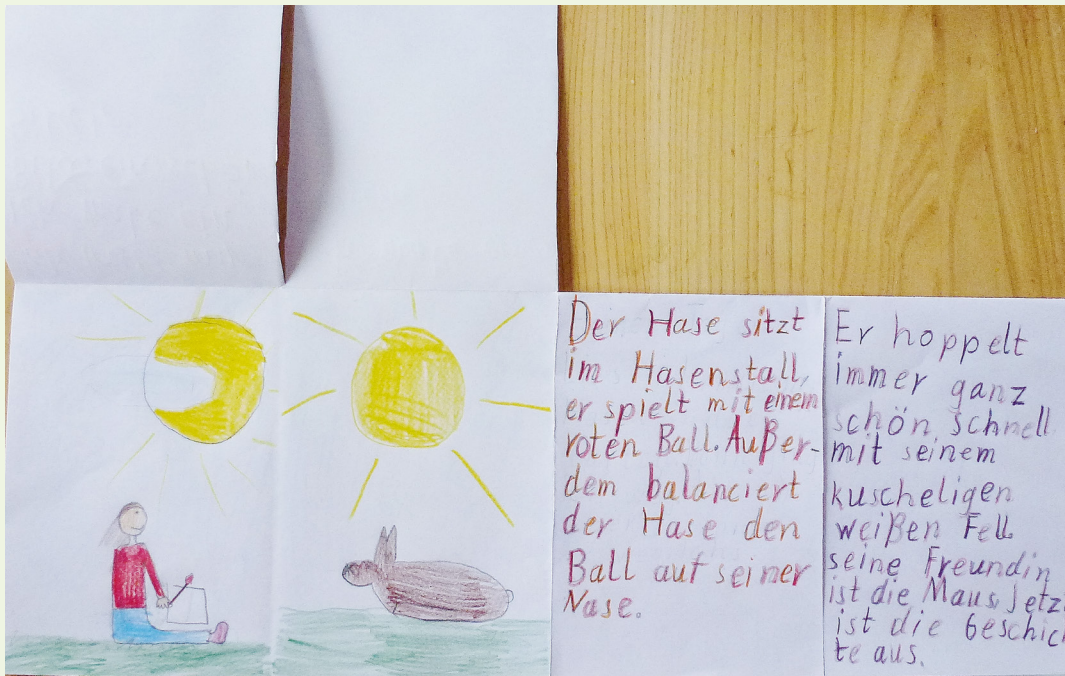 Der Hase sitzt
im Hasenstall,
er spielt mit einem
roten Ball. Außer-
dem balanciert
der Hase den
Ball auf seiner
Nase.
Er hoppelt
immer ganz
schön schnell
mit seinem
kuscheligen
weißen Fell.
seine Freundin
ist die Maus, Jetz
ist die Geschich
te aus.